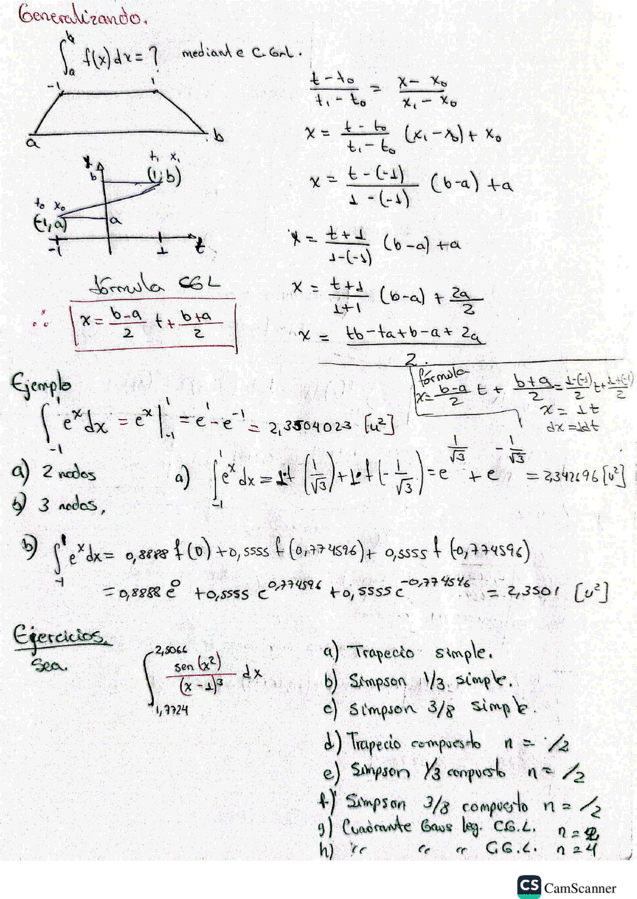 Generalizando.
∫_a^b f(x) dx = ? mediante C.G.L.
-1 1
a b
x
b t₁ x₁
(1,b)
t₀ x₀
(-1,a) a
-1 1 t
fórmula CGL
∴ x = (b-a)/2 t + (b+a)/2
(t-t₀)/(t₁-t₀) = (x-x₀)/(x₁-x₀)
x = (t-t₀)/(t₁-t₀) (x₁-x₀) + x₀
x = (t-(-1))/(1-(-1)) (b-a) + a
x = (t+1)/(1-(-1)) (b-a) + a
x = (t+1)/(1+1) (b-a) + 2a/2
x = (tb-ta+b-a+2a)/2.
fórmula
x = (b-a)/2 t + (b+a)/2 = (1-(-1))/2 t + (1+(-1))/2
x = 1t
dx = 1dt
Ejemplo
∫_{-1}^{1} e^x dx = e^x |_{-1}^{1} = e^1 - e^{-1} = 2,3504023 [u²]
a) 2 nodos
b) 3 nodos,
a) ∫_{-1}^{1} e^x dx = 1·f(1/√3) + 1·f(-1/√3) = e^{1/√3} + e^{-1/√3} = 2,342696 [u²]
b) ∫_{-1}^{1} e^x dx = 0,8888 f(0) + 0,5555 f(0,774596) + 0,5555 f(-0,774596)
= 0,8888 e^0 + 0,5555 e^{0,774596} + 0,5555 e^{-0,774596} = 2,3501 [u²]
Ejercicios,
Sea. ∫_{1,7724}^{2,5066} sen(x²)/(x-1)³ dx
a) Trapecio simple.
b) Simpson 1/3 simple.
c) Simpson 3/8 simple.
d) Trapecio compuesto n = 12
e) Simpson 1/3 compuesto n = 12
f) Simpson 3/8 compuesto n = 12
g) Cuadrante Gaus leg. C.G.L. n = 2
h) " " " C.G.L. n = 4
CS CamScanner